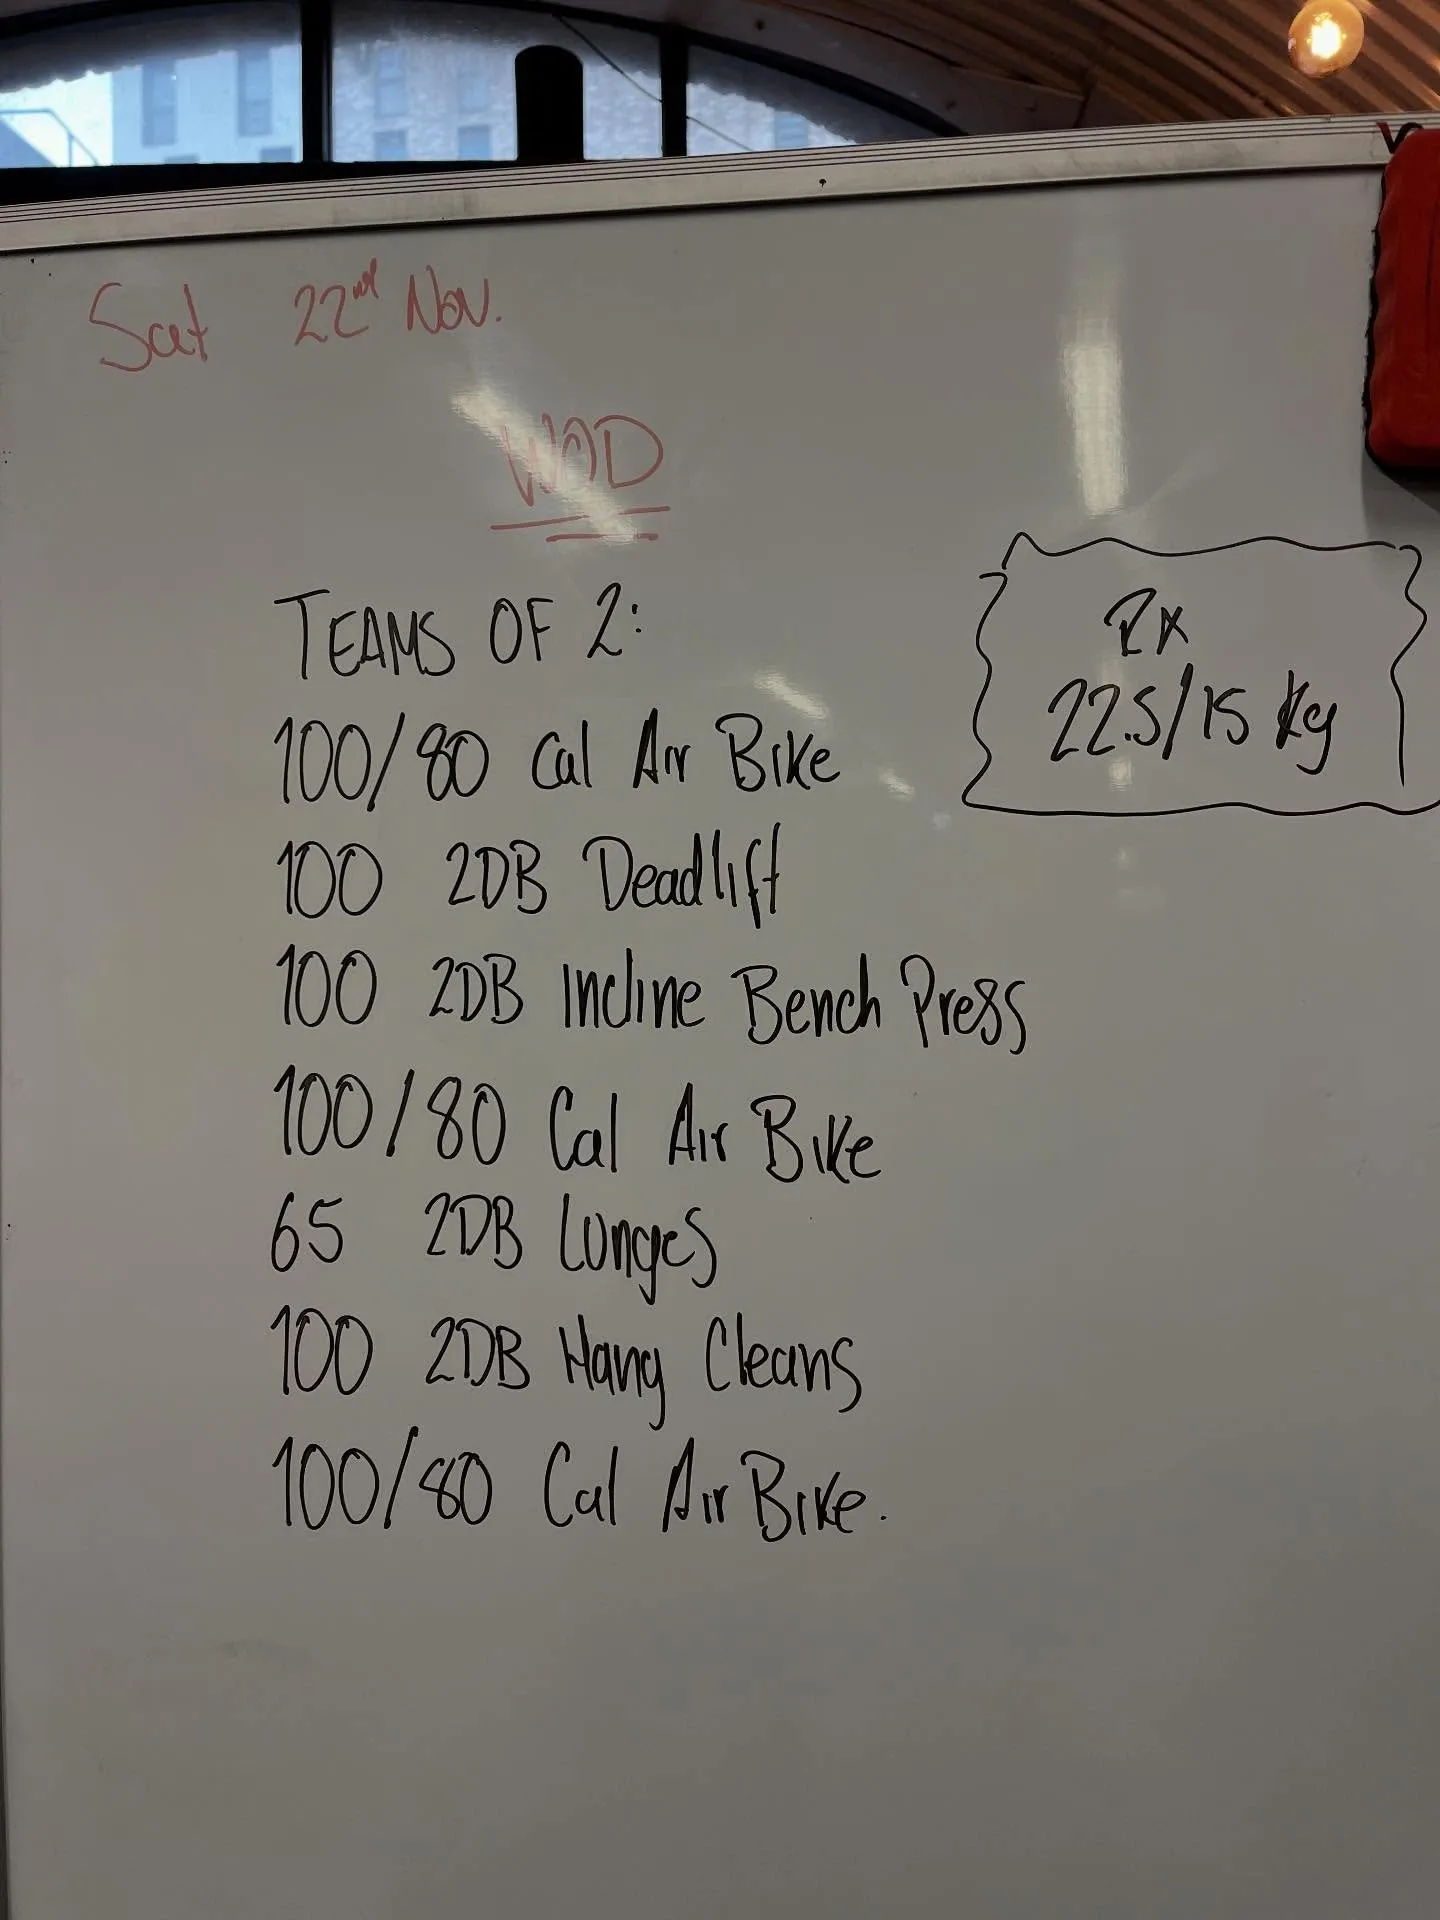 Sat 22nd Nov.
WOD
TEAMS OF 2:
100/80 Cal Air Bike
100 2DB Deadlift
100 2DB Incline Bench Press
100/80 Cal Air Bike
65 2DB Lunges
100 2DB Hang Cleans
100/80 Cal Air Bike.
Rx
22.5/15 Kg